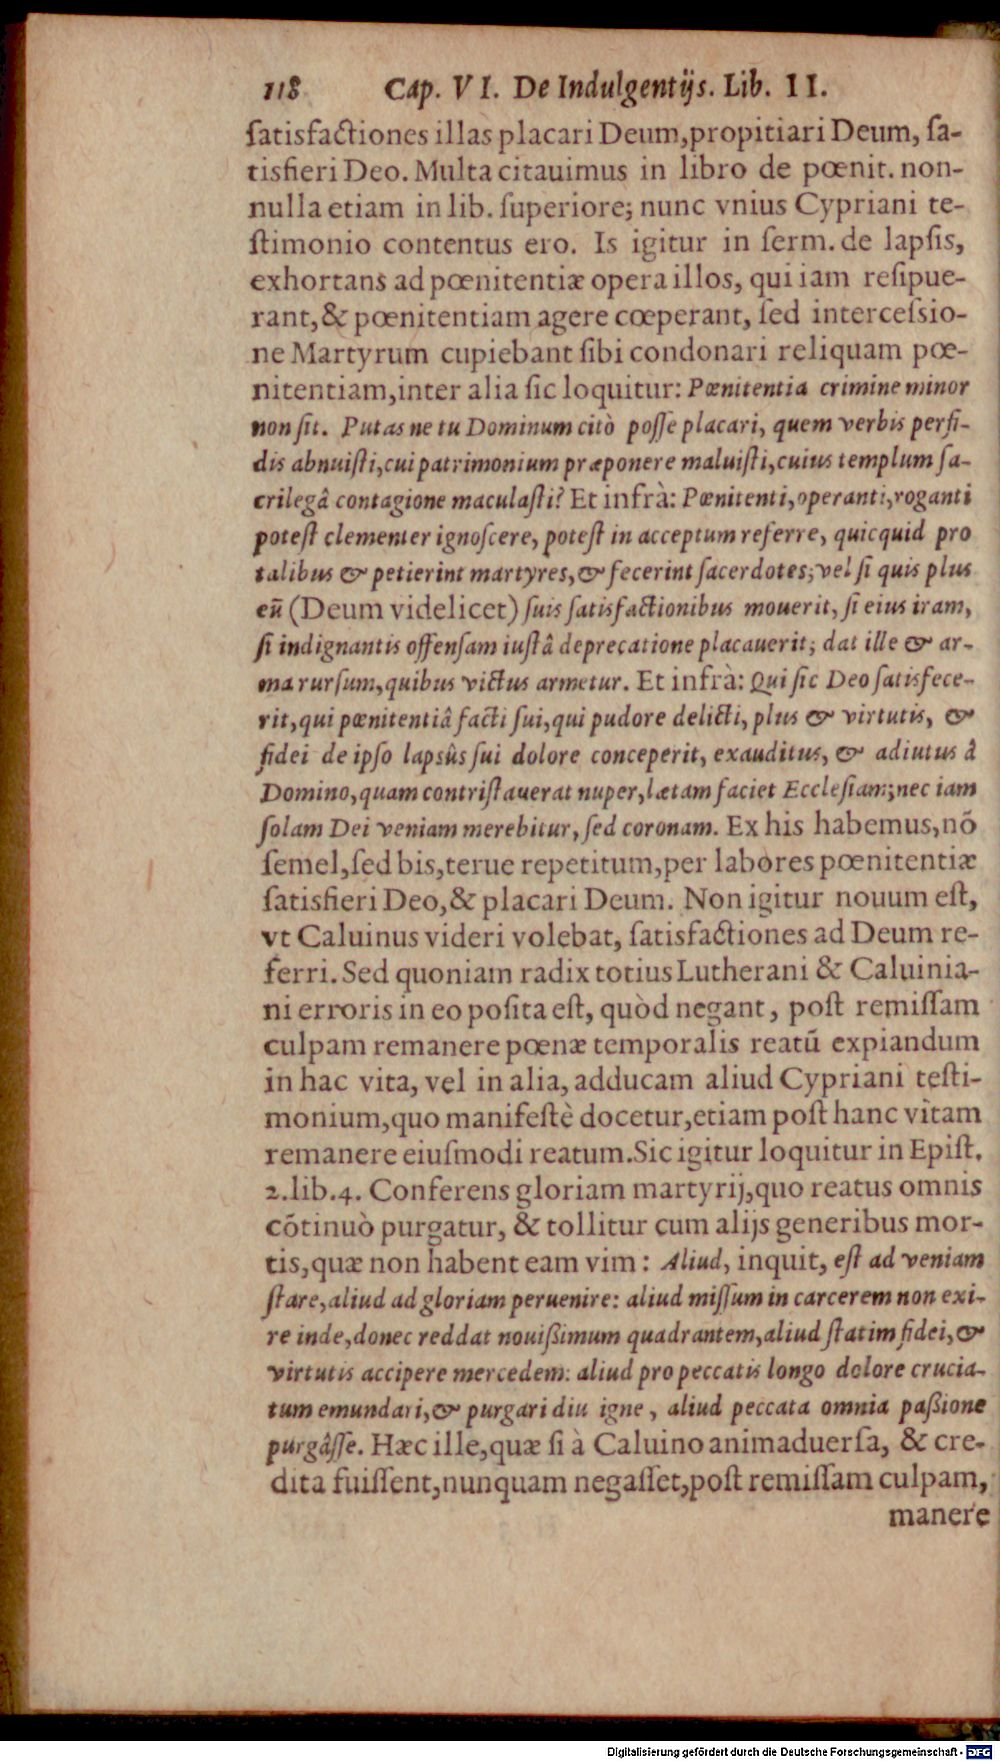 118 Cap. VI. De Indulgentijs. Lib. II.
ſatisfactiones illas placari Deum, propitiari Deum, ſa-
tisfieri Deo. Multa citauimus in libro de pœnit. non-
nulla etiam in lib. ſuperiore; nunc vnius Cypriani te-
ſtimonio contentus ero. Is igitur in ſerm. de lapſis,
exhortans ad pœnitentiæ opera illos, qui iam reſipue-
rant, & pœnitentiam agere cœperant, ſed interceſsio-
ne Martyrum cupiebant ſibi condonari reliquam pœ-
nitentiam, inter alia ſic loquitur: Pœnitentia crimine minor
non ſit. Putas ne tu Dominum citò poſſe placari, quem verbis perfi-
dis abnuiſti, cui patrimonium præponere maluiſti, cuius templum ſa-
crilegâ contagione maculaſti? Et infrà: Pœnitenti, operanti, roganti
poteſt clementer ignoſcere, poteſt in acceptum referre, quicquid pro
talibus & petierint martyres, & fecerint ſacerdotes; vel ſi quis plus
eũ (Deum videlicet) ſuis ſatisfactionibus mouerit, ſi eius iram,
ſi indignantis offenſam iuſtâ deprecatione placauerit; dat ille & ar-
ma rurſum, quibus victus armetur. Et infrà: Qui ſic Deo ſatisfece-
rit, qui pœnitentiâ facti ſui, qui pudore delicti, plus & virtutis, &
fidei de ipſo lapsûs ſui dolore conceperit, exauditus, & adiutus â
Domino, quam contriſtauerat nuper, lætam faciet Eccleſiam; nec iam
ſolam Dei veniam merebitur, ſed coronam. Ex his habemus, nõ
ſemel, ſed bis, terue repetitum, per labores pœnitentiæ
ſatisfieri Deo, & placari Deum. Non igitur nouum eſt,
vt Caluinus videri volebat, ſatisfactiones ad Deum re-
ferri. Sed quoniam radix totius Lutherani & Caluinia-
ni erroris in eo poſita eſt, quòd negant, poſt remiſſam
culpam remanere pœnæ temporalis reatũ expiandum
in hac vita, vel in alia, adducam aliud Cypriani teſti-
monium, quo manifeſtè docetur, etiam poſt hanc vitam
remanere eiuſmodi reatum. Sic igitur loquitur in Epiſt.
2. lib. 4. Conferens gloriam martyrij, quo reatus omnis
cõtinuò purgatur, & tollitur cum alijs generibus mor-
tis, quæ non habent eam vim: Aliud, inquit, eſt ad veniam
ſtare, aliud ad gloriam peruenire: aliud miſſum in carcerem non exi-
re inde, donec reddat nouißimum quadrantem, aliud ſtatim fidei, &
virtutis accipere mercedem: aliud pro peccatis longo dolore crucia-
tum emundari, & purgari diu igne, aliud peccata omnia paßione
purgâſſe. Hæc ille, quæ ſi à Caluino animaduerſa, & cre-
dita fuiſſent, nunquam negaſſet, poſt remiſſam culpam,
manere
Digitalisierung gefördert durch die Deutsche Forschungsgemeinschaft - DFG